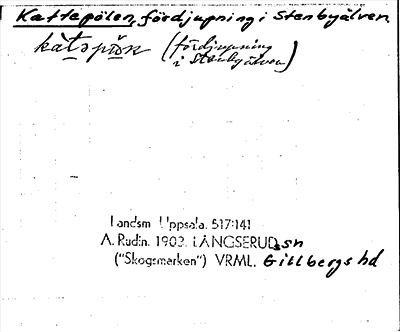 Kattepölen, fördjupning i Stenbyälven
(fördjupning
i Stenbyälven)
Landsm. Uppsala. 517:141
A. Rudin. 1902. LÅNGSERUD sn
("Skogsmarken") VRML. Gillbergs hd